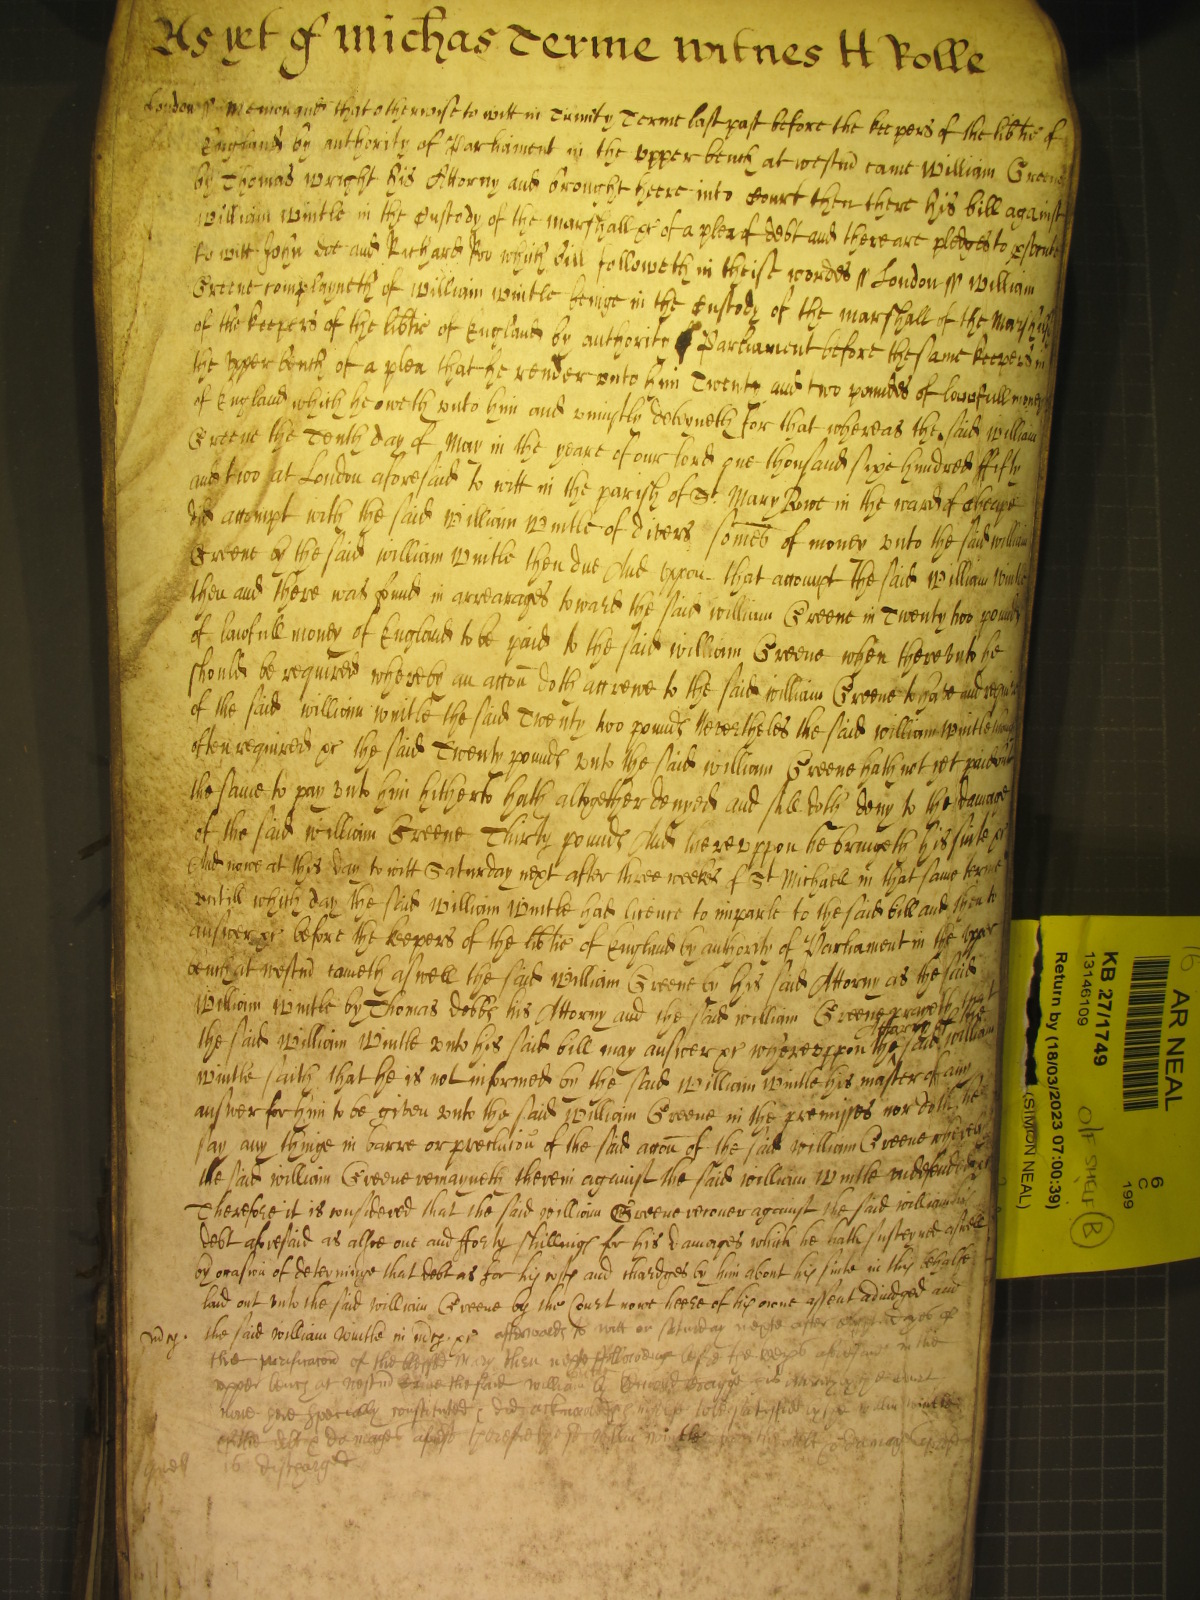 As yet of Michas Terme Witnes H Rolle
London ss Memorand that otherwise to witt in Trinity Terme last past before the keepers of the libtie of
England by authority of Parliament in the upper bench at westm̄ came William Greene
by Thomas Wright his Attorny and brought heere into Court then there his bill against
William Wintle in the Custody of the marshall &c of a plea of debt and there are pledges to
to witt John Doe and Richard Roo which bill followeth in theise wordes ss London ss William
Greene complayneth of William Wintle beinge in the Custody of the marshall of the
of the keepers of the libtie of England by authoritie of Parliament before the same keepers in
the upper bench of a plea that he render unto him Twenty and two poundes of lawfull money
of England which he oweth unto him and uniustly deteyneth for that whereas the said William
Greene the Tenth day of May in the yeare of our lord one thousand sixe hundred ffifty
and two at London aforesaid to witt in the parish of St Mary Bowe in the ward of Cheape
did accompt with the said William Wintle of divers somes of money unto the said William
Greene by the said William Wintle then due And uppon that accompt the said William Wintle
then and there was found in arrearages toward the said William Greene in Twenty two pounds
of lawfull money of England to be paid to the said William Greene when thereunto he
should be required whereby an accon doth accrewe to the said William Greene to have and
of the said William Wintle the said Twenty two pounds Neverthelesse the said William Wintle
often required &c the said Twenty pounds unto the said William Greene hath not yet paid but
the same to pay unto him hitherto hath altogether denyed and still doth deny to the damage
of the said William Greene Thirty pounds And thereuppon he bringeth his suite &c
And nowe at this day to witt Saturday next after three weekes of St Michaell in that same terme
untill which day the said William Wintle had licence to imparle to the said bill and then to
answer &c before the keepers of the libtie of England by authority of Parliament in the upper
bench at westm̄ cometh aswell the said William Greene by his said Attorny as the said
William Wintle by Thomas Dobbs his Attorny and the said William Greene prayeth that
the said William Wintle unto his said bill may answer &c whereuppon the Attorny of the said William
Wintle saith that he is not informed by the said William Wintle his master of any
answer for him to be given unto the said William Greene in the premisses nor doth he
say any thinge in barre or preclusion of the said accon of the said William Greene whereby
the said William Greene remayneth therein against the said William Wintle undefended &c
Therefore it is considered that the said William Greene recover against the said William his
debt aforesaid as alsoe one and fforty shillings for his damages which he hath susteyned aswell
by occasion of deteyninge that debt as for his costs and chardges by him about his suite in this behalfe
laid out unto the said William Greene by the Court nowe heere of his owne assent adiudged and
mcy. the said William Wintle in mcy &c afterwards to witt on Saturday next after
the purificacon of the blessed Mary then next followinge before the keeps aforesaid in the
upper bench at westm̄ came the said William by
specially constituted did acknowledge
of the debt & damages Therefore Wintle debt & damages
is discharged
AR NEAL
6
C
199
KB 27/1749
13146109
Return by (18/03/2023 07:00:39)
(SIMON NEAL)
O/F SHELF
B